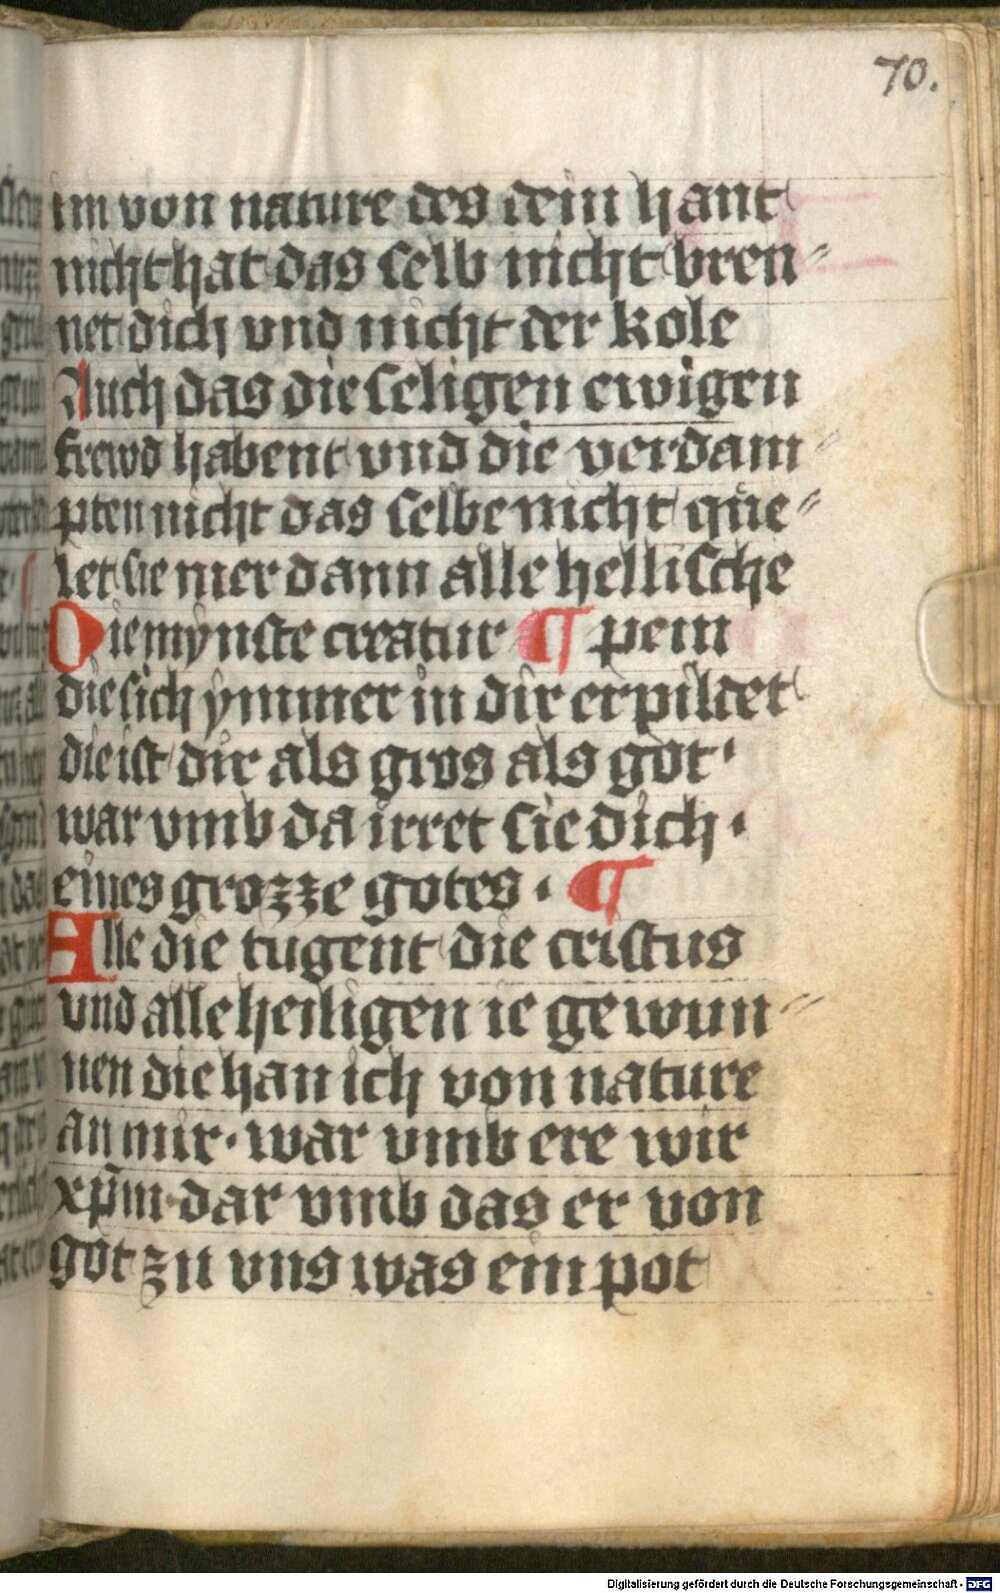 70.
im von nature des dein hant
nicht hat das selb nicht bren〃
net dich vnd nicht der kole
Auch das die seligen ewigen
frewd habent vnd die verdam〃
pten nicht das selbe nicht que〃
let sie mer dann alle hellische
Die mynste creatur ¶ pein
die sich ymmer in dir erpildet
die ist dir als gros als got·
war vmb da irret sie dich·
eines grozze gotes· ¶
Alle die tugent die cristus
vnd alle heiligen ie gewun〃
nen die han ich von nature
an mir· war vmb ere wir
xp̄m· dar vmb das er von
got zu vns was ein pot
Digitalisierung gefördert durch die Deutsche Forschungsgemeinschaft - DFG